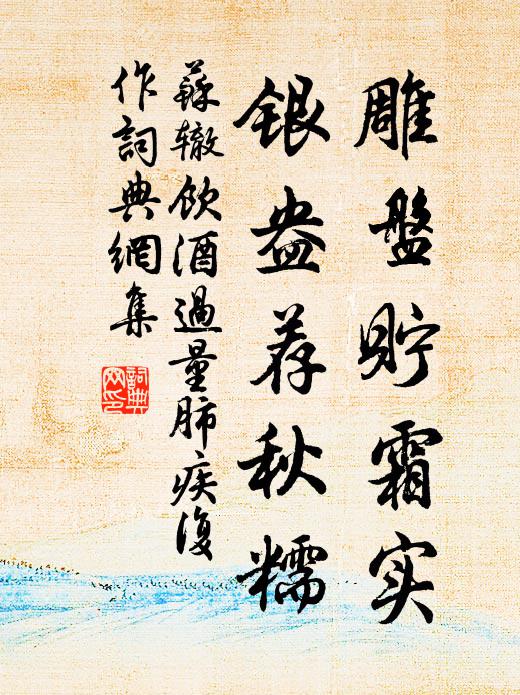 雕盤貯霜实
银盎荐秋糯
蘇辙飲酒過量肺疾復
作詞典網集
詞典
网印